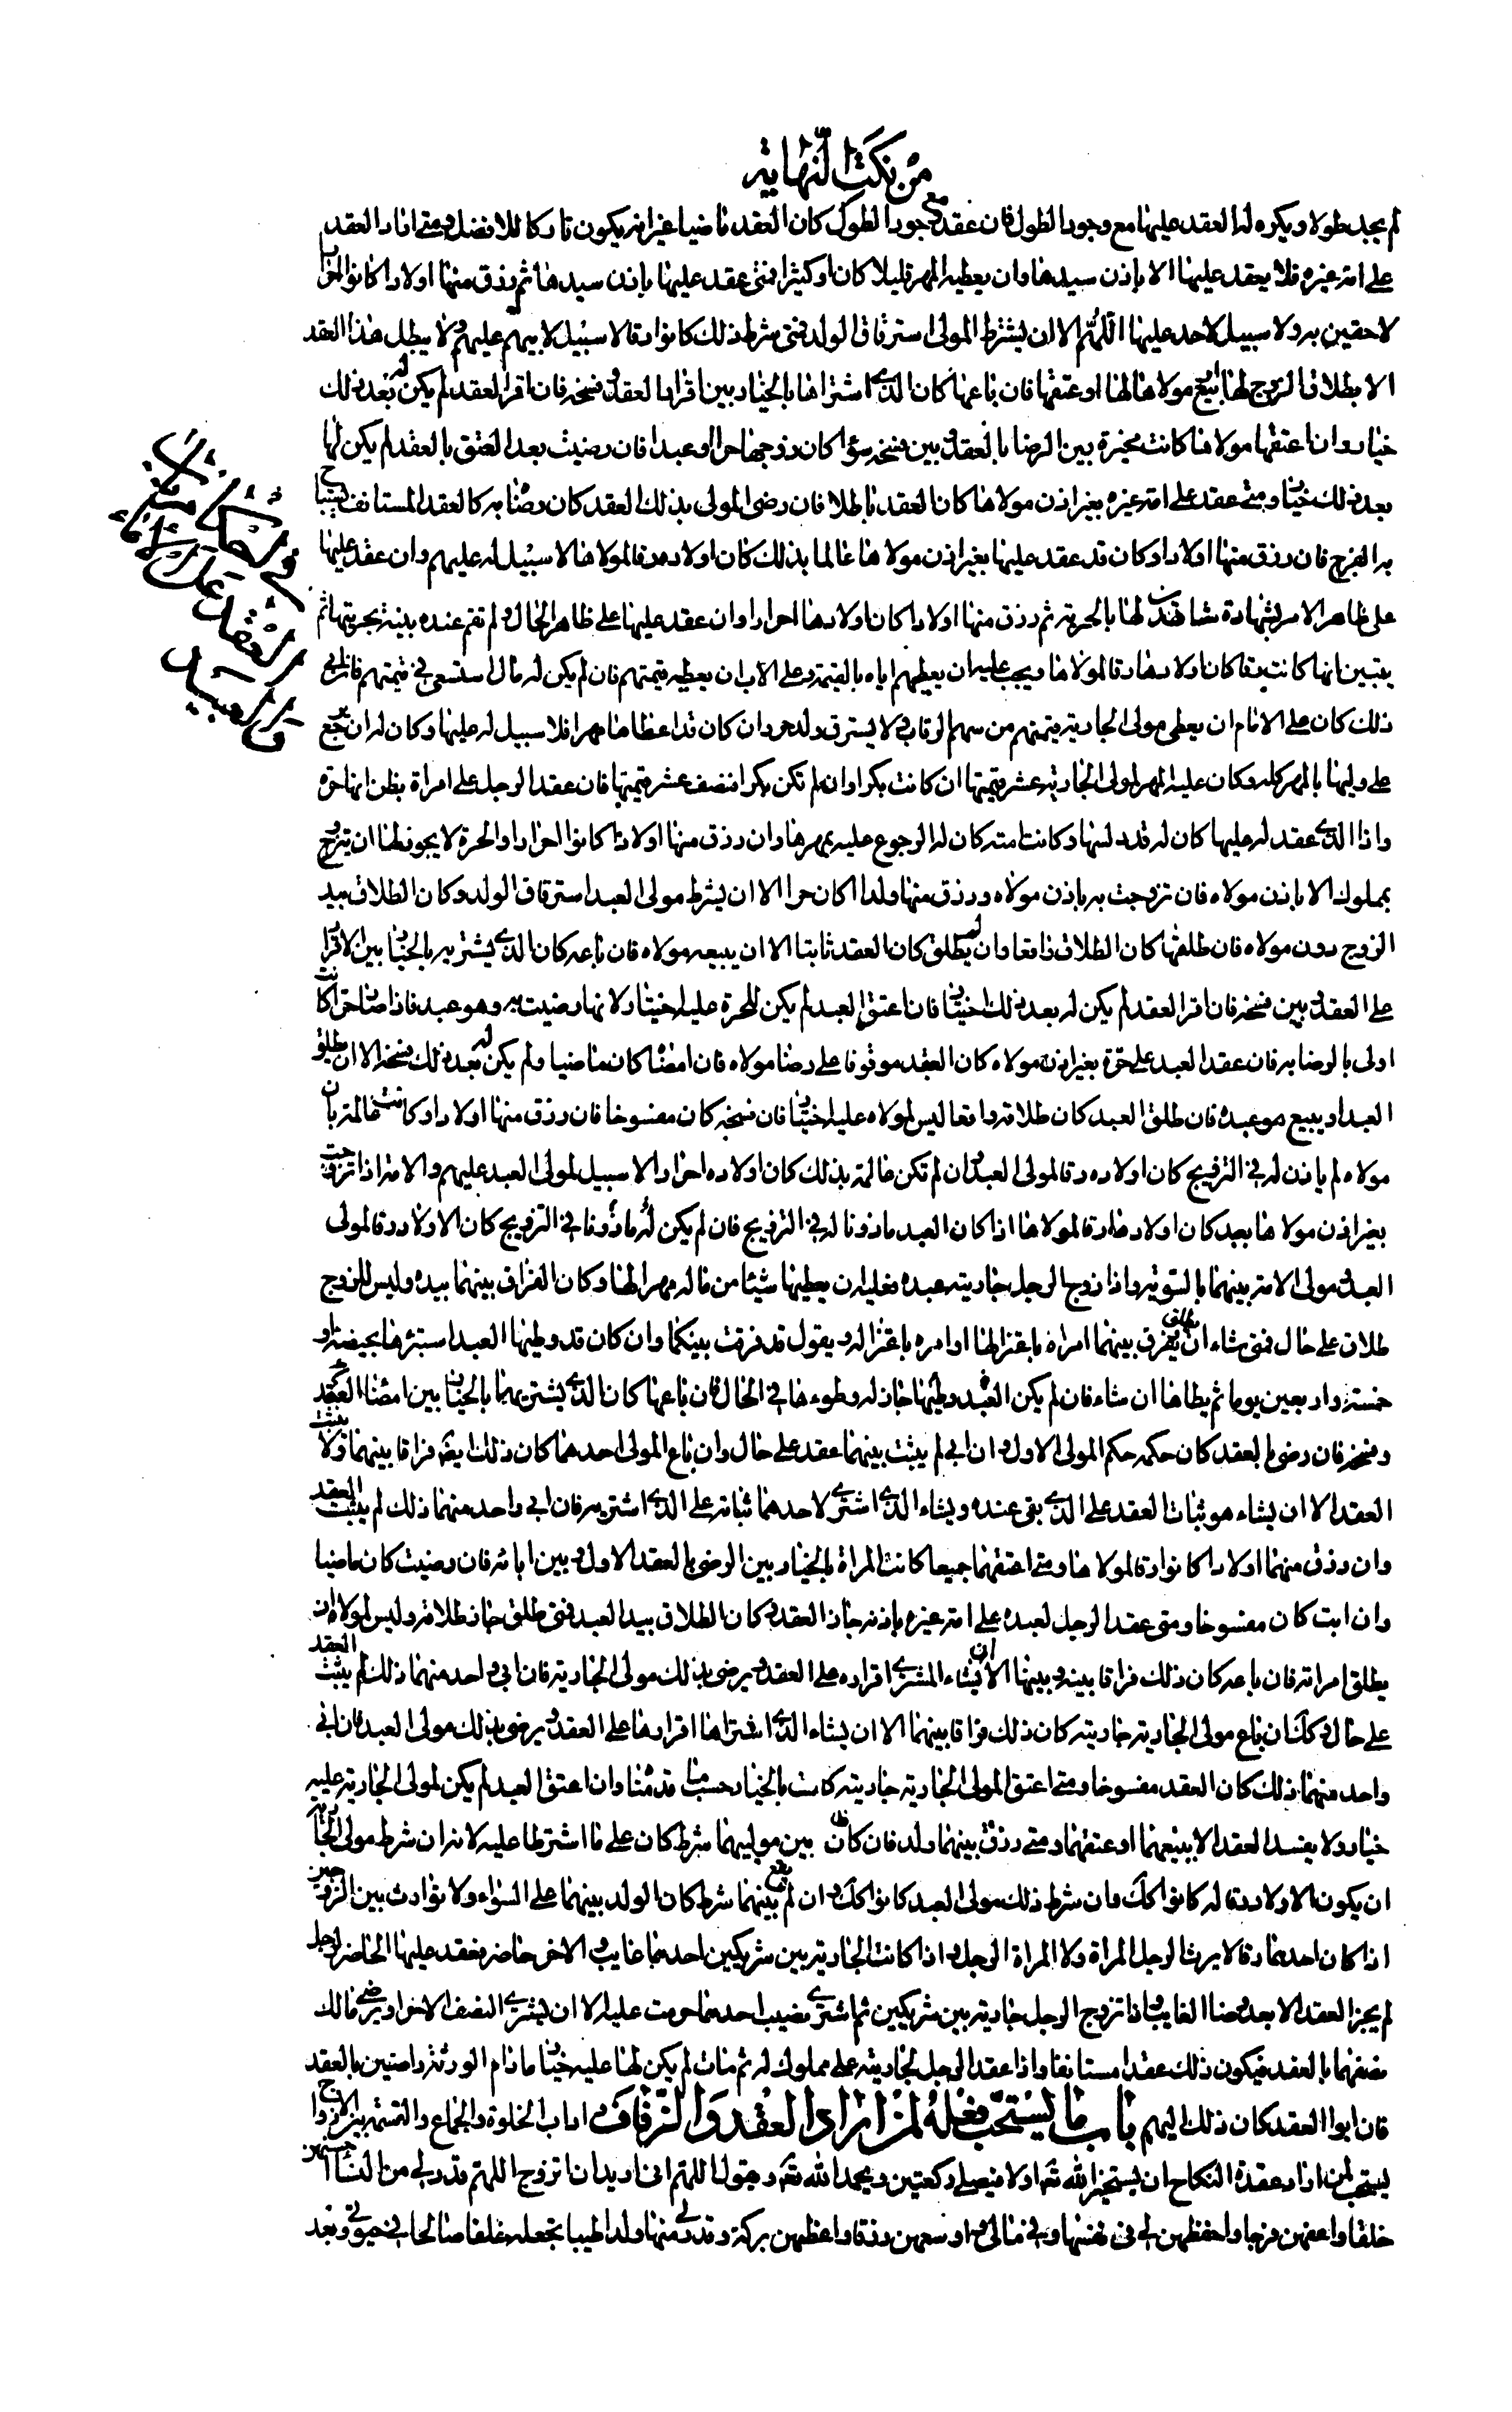 من نكت النهاية
لم يجد طولا ويكره له العقد عليها مع وجود الطول فان عقد مع وجود الطول كان العقد ماضيا غير انه يكون تاركا للافضل ومتى اراد العقد
على امة غيره فلا يعقد عليها الا باذن سيدها وان يعطيه المهر قليلا كان او كثيرا فمتى عقد عليها باذن سيدها ثم رزق منها اولادا كانوا احرارا
لاحقين به ولا سبيل لاحد عليها اللهم الا ان يشترط المولى استرقاق الولد فمتى شرط ذلك كانوا رقا لا سبيل لابيهم عليهم ولا يبطل هذا العقد
الا بطلاق الزوج لها او بيع مولاها لها او عتقها فان باعها كان الذي اشتراها بالخيار بين اقرار العقد وفسخه فان اقر العقد لم يكن له بعد ذلك
خيار وان اعتقها مولاها كانت مخيرة بين الرضا بالعقد وبين فسخه سواء كان زوجها حرا او عبدا فان رضيت بعد العتق بالعقد لم يكن لها
بعد ذلك خيار ومتى عقد على امة غيره بغير اذن مولاها كان العقد باطلا فان رضي المولى بذلك العقد كان رضاه به كالعقد المستانف يستباح
به الفرج فان رزق منها اولادا وكان قد عقد عليها بغير اذن مولاها عالما بذلك كان اولاده رقا لمولاها لا سبيل له عليهم وان عقد عليها
على ظاهر الامر بشهادة شاهدين لها بالحرية ثم رزق منها اولادا كان اولادها احرارا وان عقد عليها على ظاهر الحال ولم تقم عنده بينة بحريتها ثم
يتبين انها كانت رقا كان اولادها رقا لمولاها ويجب عليه ان يعطيهم اياه بالقيمة وعلى الاب ان يعطيه قيمتهم فان لم يكن له مال استسعى في قيمتهم فان ابى
ذلك كان على الامام ان يعطي مولى الجارية قيمتهم من سهم الرقاب ولا يسترق ولد حر وان كان قد اعطاها مهرا فلا سبيل له عليها وكان له ان يرجع
على وليها بالمهر كله وكان عليه المهر لمولى الجارية عشر قيمتها ان كانت بكرا وان لم تكن بكرا فنصف عشر قيمتها فان عقد الرجل على امراة يظن انها حرة
واذا الذي عقد له عليها كان له قد دلسها وكانت امته كان له الرجوع عليه بمهرها وان رزق منها اولادا كانوا احرارا والحرة لا يجوز لها ان يتزوج
بمملوك الا باذن مولاه فان تزوجت به باذن مولاه ورزق منها ولدا كان حرا الا ان يشرط مولى العبد استرقاق الولد وكان الطلاق بيد
الزوج دون مولاه فان طلقها كان الطلاق واقعا وان لم يطلق كان العقد ثابتا الا ان يبيعه مولاه فان باعه كان الذي يشتريه بالخيار بين الاقرار
على العقد وبين فسخه فان اقر العقد لم يكن له بعد ذلك اختيار فان اعتق العبد لم يكن للحرة عليه اختيار لانها رضيت به وهو عبد فاذا صار حرا كانت
اولى بالرضا به فان عقد العبد على حرة بغير اذن مولاه كان العقد موقوفا على رضا مولاه فان امضاه كان ماضيا ولم يكن له بعد ذلك فسخه الا ان يطلق
العبد او يبيع هو عبده فان طلق العبد كان طلاقه واقعا ليس لمولاه عليه اختيار فان فسخه كان مفسوخا فان رزق منها اولادا وكانت عالمة بان
مولاه لم ياذن له في التزويج كان اولاده رقا لمولى العبد وان لم تكن عالمة بذلك كان اولاده احرارا لا سبيل لمولى العبد عليهم والامة اذا تزوجت
بغير اذن مولاها بعبد كان اولادها رقا لمولاها اذا كان العبد ماذونا له في التزويج فان لم يكن له ماذونا في التزويج كان الاولاد رقا لمولى
العبد ومولى الامة بينهما بالسوية واذا زوج الرجل جاريته عبده فعليه ان يعطيها شيئا من ماله مهرا لها وكان الفراق بينهما بيده وليس للزوج
طلاق على حال فمتى شاء ان يفرق بينهما امراه باعتزالها او امره باعتزاله ويقول قد فرقت بينكما وان كان قد وطئها العبد استبرئها بحيضة او
خمسة واربعين يوما ثم يطاها ان شاء فان لم يكن العبد وطئها جاز له وطوءها في الحال فان باعها كان الذي يشتريهما بالخيار بين امضاء العقد
وفسخه فان رضي بالعقد كان حكمه حكم المولى الاول وان ابى لم يثبت بينهما عقد على حال وان باع المولى احدهما كان ذلك ايضه فراقا بينهما ولا يثبت
العقد الا ان يشاء هو ثبات العقد على الذي بقي عنده ويشاء الذي اشترى لاحدهما ثباته على الذي اشتريه فان ابى واحد منهما ذلك لم يثبت العقد
وان رزق منهما اولادا كانوا رقا لمولاها ومتى اعتقهما جميعا كانت المراة بالخيار بين الرضى بالعقد الاول وبين ابائه فان رضيت كان ماضيا
وان ابت كان مفسوخا ومتى عقد الرجل لعبده على امة غيره باذنه جاز العقد وكان الطلاق بيد العبد فمتى طلق جاز طلاقه وليس لمولاه ان
يطلق امراته فان باعه كان ذلك فراقا بينه وبينها الا ان يشاء المشتري اقراره على العقد ويرضى بذلك مولى الجارية فان ابى واحد منهما ذلك لم يثبت العقد
على حال وكك ان باع مولى الجارية جاريته كان ذلك فراقا بينهما الا ان يشاء الذي اشتراها اقرارها على العقد ويرضى بذلك مولى العبد فان ابى
واحد منهما ذلك كان العقد مفسوخا ومتى اعتق المولى الجارية جاريته كانت بالخيار حسب ما قدمناه وان اعتق العبد لم يكن لمولى الجارية عليه
خيار ولا يفسد العقد الا ببيعهما او عتقهما ومتى رزق بينهما ولد فان كان بين موليهما شرط كان على ما اشترطا عليه لانه ان شرط مولى الجارية
ان يكون الاولاد رقا له كانوا كك وان شرط ذلك مولى العبد كانوا كك وان لم يقع بينهما شرط كان الولد بينهما على السواء ولا توارث بين الزوجين
اذا كان احدهما رقا لا يرث الرجل المراة ولا المراة الرجل واذا كانت الجارية بين شريكين احدهما غايب والاخر حاضر فعقد عليها الحاضر لرجل
لم يجز العقد الا بعد رضا الغايب واذا تزوج الرجل جارية بين شريكين ثم اشترى نصيب احدهما حرمت عليه الا ان يشتري النصف الاخر او يرضى مالك
نصفهما بالعقد فيكون ذلك عقدا مستانفا واذا عقد الرجل لجاريته على مملوك له ثم مات لم يكن لها عليه خيار ما دام الورثة راضين بالعقد
فان ابوا العقد كان ذلك اليهم باب ما يستحب فعله لمن اراد العقد والزفاف واداب الخلوة والجماع والقسمة بين الازواج
يستحب لمن اراد عقدة النكاح ان يستخير الله تعه اولا فيصلي ركعتين ويحمد الله تعه ويقول اللهم اني اريد ان اتزوج اللهم قدر لي من النساء احسنهن
خلقا واعفهن فرجا واحفظهن لي في نفسها وفي مالي واوسعهن رزقا واعظمهن بركة وقدر لي منها ولدا طيبا تجعله خلفا صالحا في حيوتي وبعد
العقد على الاماء
والعبيد